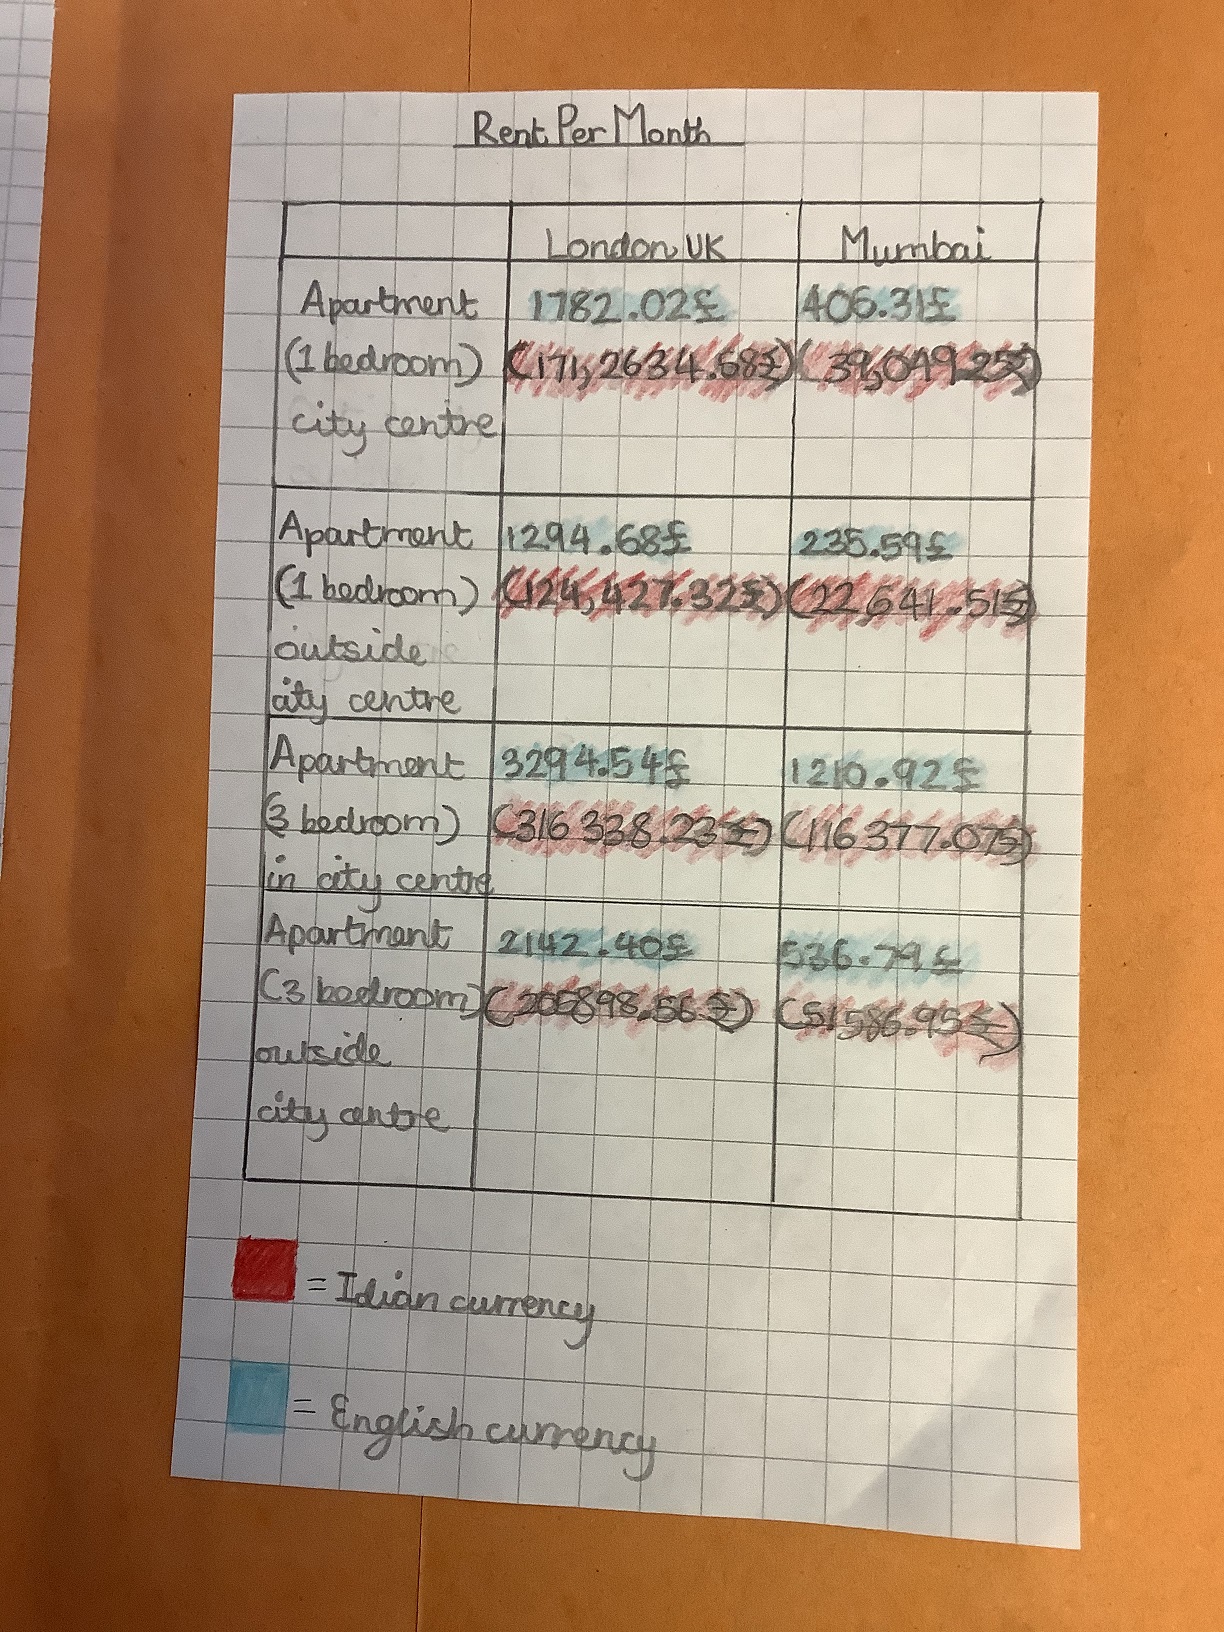 Rent Per Month
London UK Mumbai
Apartment 1782.02£ 406.31£
(1 bedroom) (171,2634.68₹) (39,049.25₹)
city centre
Apartment 1294.68£ 235.59£
(1 bedroom) (124,427.32₹) (22,641.51₹)
outside
city centre
Apartment 3294.54£ 1210.92£
(3 bedroom) (316 338.23₹) (116 377.07₹)
in city centre
Apartment 2142.40£ 536.79£
(3 bedroom) (205898.56₹) (51586.95₹)
outside
city centre
= Idian currency
= English currency